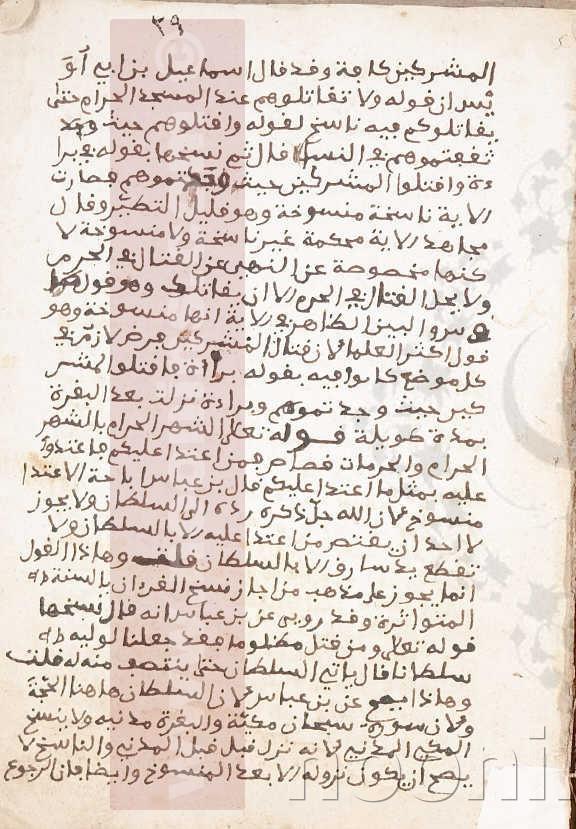 ٣٩
المشركين كافة وقد قال اسماعيل بن ابي أوَ
يْس ان قوله ولا تقاتلوهم عند المسجد الحرام حتى
يقاتلوكم فيه ناسخ لقوله واقتلوهم حيث
ثقفتموهم في النساء قال ثم نسخها بقوله في برا
ءة واقتلوا المشركين حيث وجدتموهم فصارت
الاية ناسخة منسوخة وهو قليل النظير وقال
مجاهد الاية محكمة غير ناسخة ولا منسوخة لا
كنها مخصوصة عن النهي عن القتال في الحرم
ولا يحل القتال في الحرم الا ان يقاتلوك وهو قول
طاوس والبين الظاهر في الاية انها منسوخة وهو
قول اكثر العلماء لان قتال المشركين فرض لازم في
كل موضع كانوا فيه بقوله براءة فاقتلوا المشر
كين حيث وجدتموهم وبراءة نزلت بعد البقرة
بمدة طويلة قوله تعالى الشهر الحرام بالشهر
الحرام والحرمات قصاص فمن اعتدا عليكم فاعتدوا
عليه بمثل ما اعتدا عليكم قال بن عباس اباحة الاعتدا
منسوخ لان الله جل ذكره رده الى السلطان ولا يجوز
لاحد ان يقتص من اعتدا عليه الا بالسلطان ولا
تقطع يد سارق الا بالسلطان قلت وهاذا القول
انما يجوز على مذهب من اجاز نسخ القران بالسنة
المتواترة وقد روي عن بن عباس انه قال نسخها
قوله تعالى ومن قتل مظلوما فقد جعلنا لوليه
سلطانا قال ياتي السلطان حتى ينتصف منه له قلت
وهاذا عن بن عباس لان السلطان هاهنا الحجة
ولان سورة سبحان مكية والبقرة مدنية ولا ينسخ
المكي المدني لانه نزل قبل المدني والناسخ لا
يصح ان يكون نزوله الا بعد المنسوخ وايضا فان الرجوع
noorli